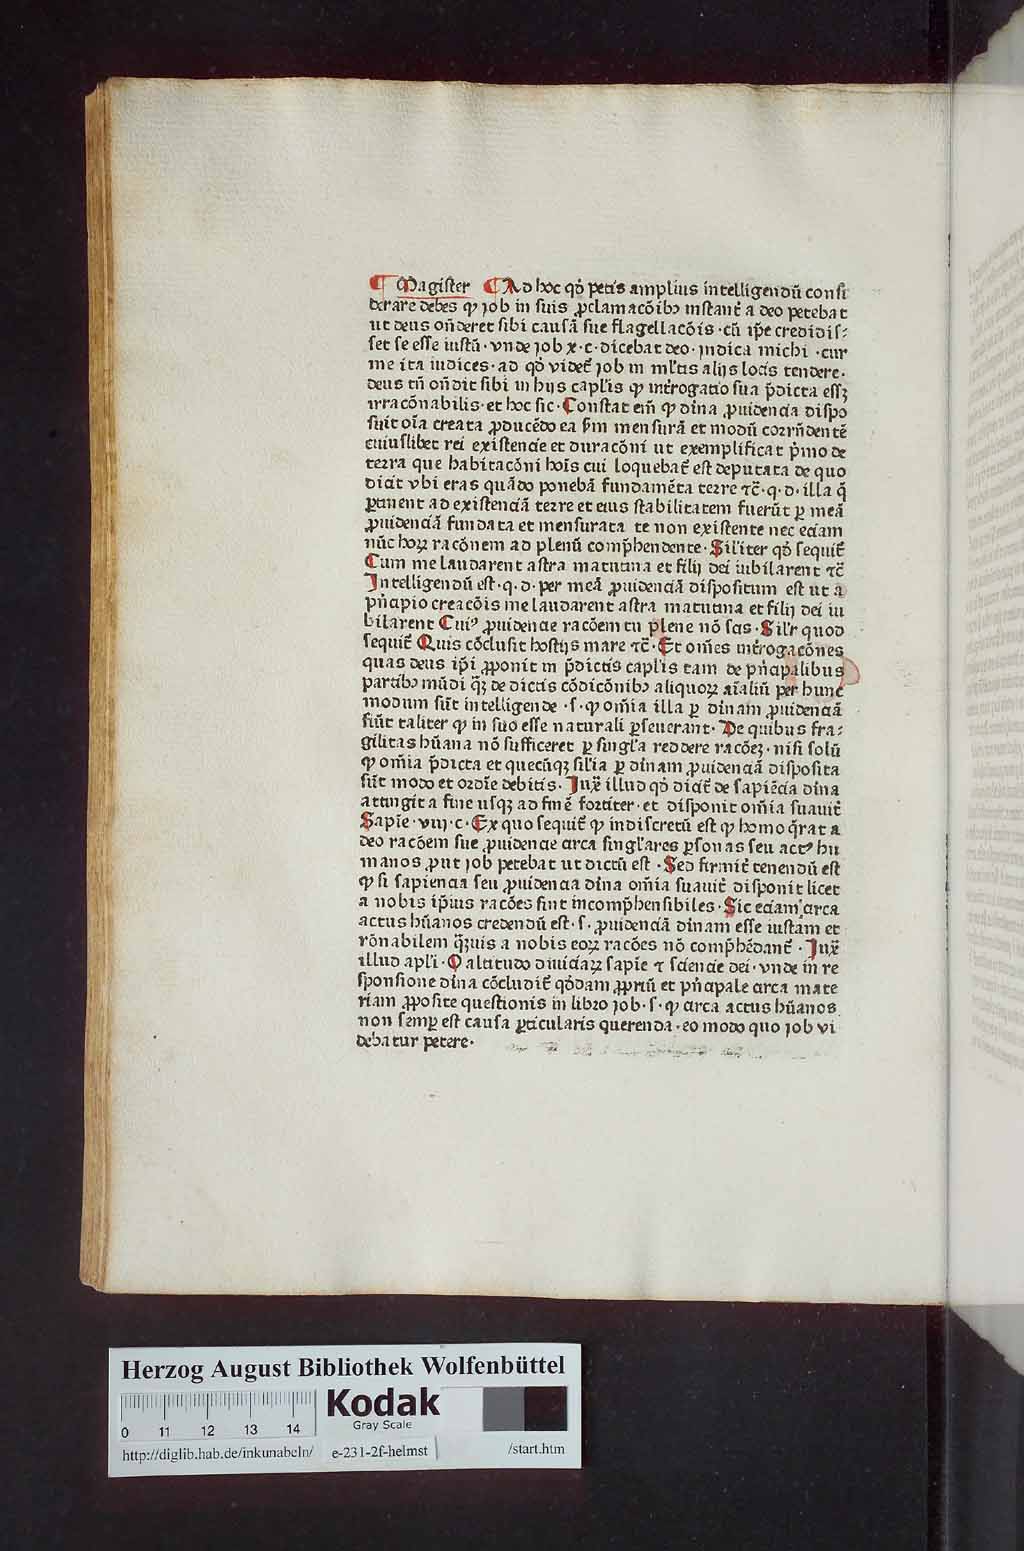 ¶ Magister ¶ Ad hoc qđ petis amplius intelligendū consi
derare debes ꝙ job in suis ꝓclamacōibꝫ instant̄ a deo petebat
ut deus on̄deret sibi causā sue flagellacōis · cū ip̄e credidis⸗
set se esse iustū · vnde job x · c · dicebat deo · jndica michi · cur
me ita iudices · ad qđ videt̄ job in ml̄tis alijs locis tendere ·
deus tn̄ on̄dit sibi in hijs capl̄is ꝙ int̄rogatio sua p̄dicta essꝫ
irracōnabilis · et hoc sic · Constat em̄ ꝙ diīna ꝓuidencia dispo
suit oīa creata ꝓducēdo ea s̄m mensurā et modū corrn̄dentē
cuiuslibet rei existencie et duracōni ut exemplificat p̄mo de
terra que habitacōni hoīs cui loquebat̄ est deputata de quo
dicit vbi eras quādo ponebā fundamēta terre ⁊c̄ · q · d · illa q̄
ꝑtinent ad existenciā terre et eius stabilitatem fuerūt ꝑ meā
ꝓuidenciā fundata et mensurata te non existente nec eciam
nūc hoꝝ racōnem ad plenū comp̄hendente · Sil̄iter qđ sequit̄
Cum me laudarent astra matutina et filij dei iubilarent ⁊c̄
Intelligendū est · q · d · per meā ꝓuidenciā dispositum est ut a
pn̄cipio creacōis me laudarent astra matutina et filij dei iu
bilarent Cuiꝰ ꝓuidencie racōem tu plene nō scis · Sil̄r quod
sequit̄ Quis cōclusit hostijs mare ⁊c̄ · Et om̄es int̄rogacōnes
quas deus ip̄i ꝓponit in p̄dictis capl̄is tam de pn̄cipalibus
partibꝫ mūdi qꝫ de dictis cōdicōnibꝫ aliquoꝝ aīaliū per hunc
modum sūt intelligende · s · ꝙ om̄ia illa ꝑ dīnam ꝓuidenciā
siūt taliter ꝙ in suo esse naturali ꝑseuerant · De quibus fra⸗
gilitas hūana nō sufficeret ꝑ singl̄a reddere racōeꝫ · nisi solū
ꝙ om̄ia p̄dicta et quecūqꝫ sil̄ia ꝑ dīnam ꝓuidenciā disposita
sūt modo et ordīe debitis · Jux̄ illud qđ dicit̄ de sapiēcia dīna
attingit a fine usqꝫ ad finē fortiter · et disponit om̄ia suauit̄
Sapīe · viij · c · Ex quo sequit̄ ꝙ indiscretū est ꝙ homo q̄rat a
deo racōem sue ꝓuidencie circa singl̄ares ꝑsonas seu actꝰ hu
manos ꝓut job petebat ut dictū est · Sed firmit̄ tenendū est
ꝙ si sapiencia seu ꝓuidencia dīna om̄ia suauit̄ disponit licet
a nobis ip̄ius racōes sint incomp̄hensibiles · Sic eciam circa
actus hūanos credendū est · s · ꝓuidenciā dīnam esse iustam et
rōnabilem q̄ꝫuis a nobis eoꝝ racōes nō comp̄hēdant̄ · Jux̄
illud apl̄i · O altitudo diuiciaꝝ sapīe ⁊ sciencie dei · vnde in re
sponsione dīna cōcludit̄ qđdam ꝓpriū et pn̄cipale circa mate
riam ꝓposite questionis in libro job · s · ꝙ circa actus hūanos
non semꝑ est causa ꝑticularis querenda · eo modo quo job vi
debatur petere ·
Herzog August Bibliothek Wolfenbüttel
0 11 12 13 14
Kodak
Gray Scale
http://diglib.hab.de/inkunabeln/ e-231-2f-helmst /start.htm